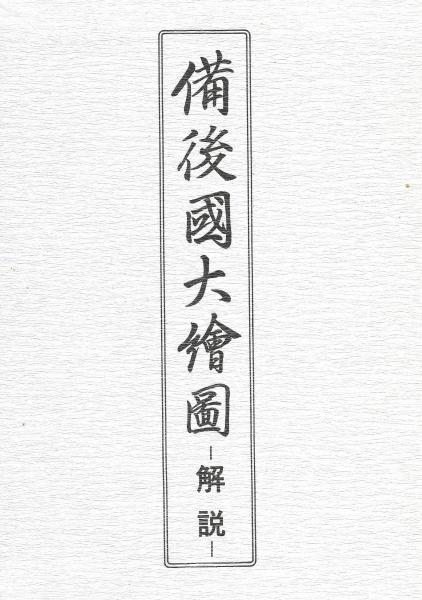 備後國大繪圖
―解説―